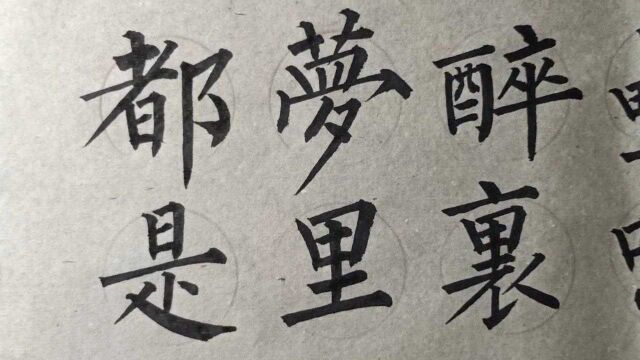 醉裏
夢里
都是